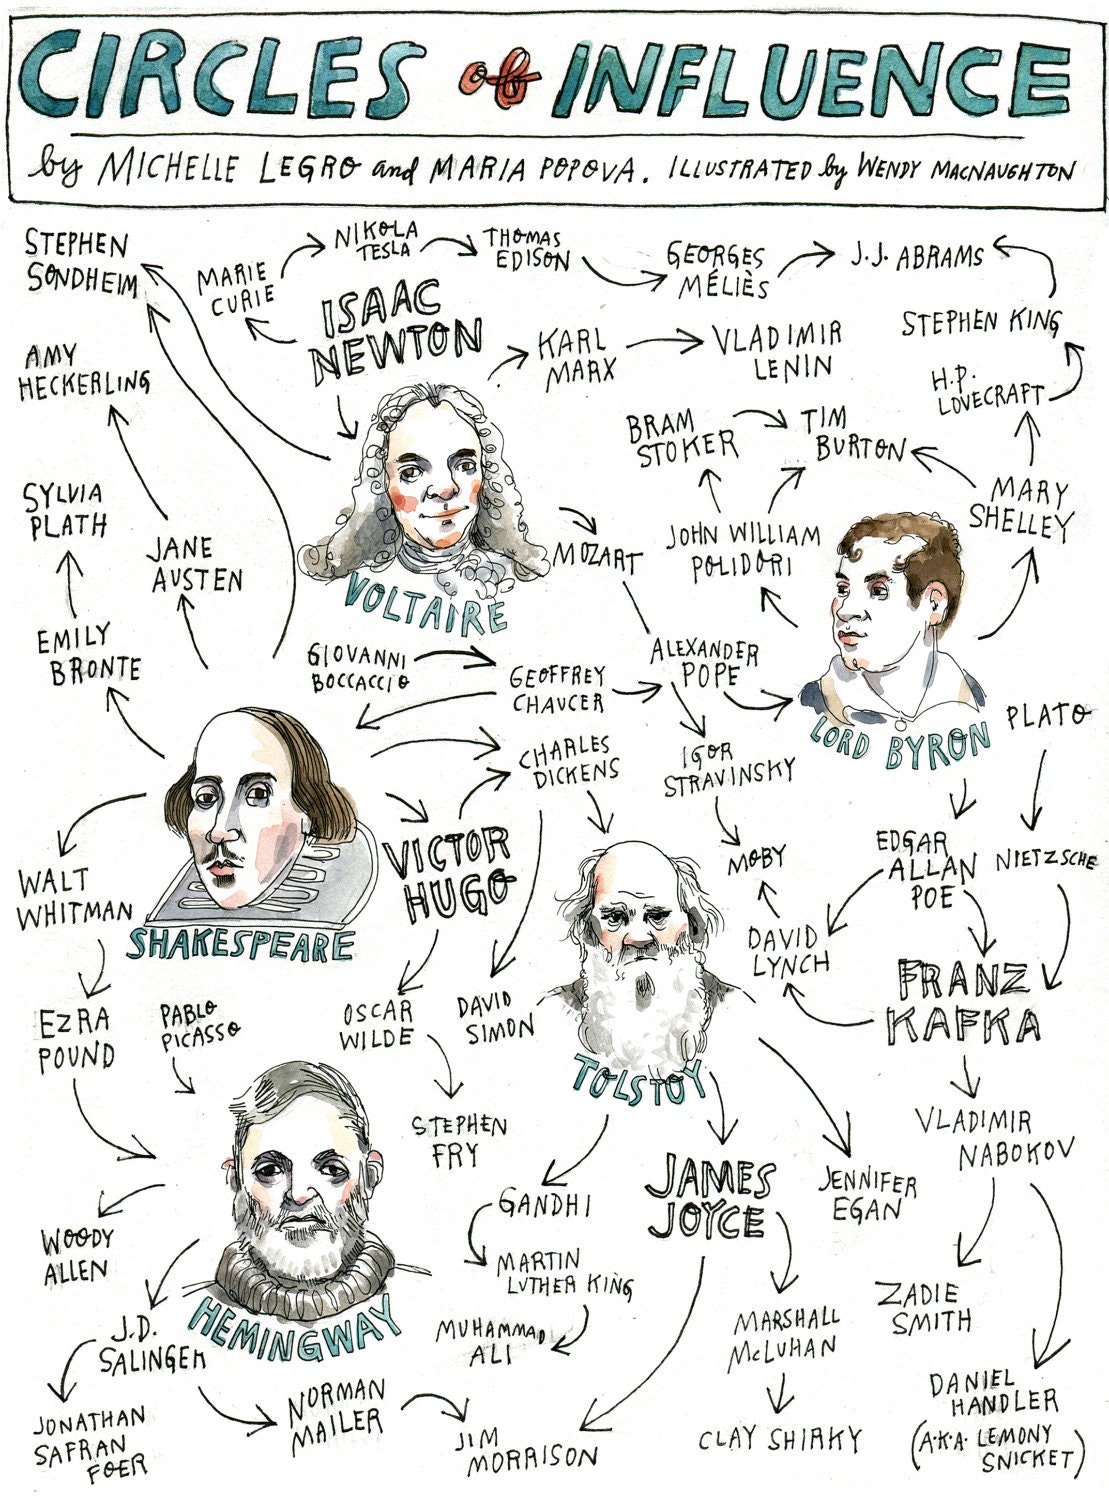 CIRCLES of INFLUENCE
by MICHELLE LEGRO and MARIA POPOVA. ILLUSTRATED by WENDY MACNAUGHTON
STEPHEN
SONDHEIM
MARIE
CURIE
NIKOLA
TESLA
THOMAS
EDISON
GEORGES
MÉLIÈS
J.J. ABRAMS
ISAAC
NEWTON
KARL
MARX
VLADIMIR
LENIN
STEPHEN KING
AMY
HECKERLING
H.P.
LOVECRAFT
BRAM
STOKER
TIM
BURTON
SYLVIA
PLATH
MARY
SHELLEY
JANE
AUSTEN
MOZART
JOHN WILLIAM
POLIDORI
VOLTAIRE
EMILY
BRONTE
GIOVANNI
BOCCACCIO
GEOFFREY
CHAUCER
ALEXANDER
POPE
LORD BYRON
PLATO
CHARLES
DICKENS
IGOR
STRAVINSKY
VICTOR
HUGO
MOBY
EDGAR
ALLAN
POE
NIETZSCHE
WALT
WHITMAN
SHAKESPEARE
DAVID
LYNCH
FRANZ
KAFKA
EZRA
POUND
PABLO
PICASSO
OSCAR
WILDE
DAVID
SIMON
TOLSTOY
STEPHEN
FRY
VLADIMIR
NABOKOV
GANDHI
JAMES
JOYCE
JENNIFER
EGAN
WOODY
ALLEN
MARTIN
LUTHER KING
HEMINGWAY
ZADIE
SMITH
J.D.
SALINGER
MUHAMMAD
ALI
MARSHALL
McLUHAN
NORMAN
MAILER
DANIEL
HANDLER
(A.K.A. LEMONY
SNICKET)
JONATHAN
SAFRAN
FOER
JIM
MORRISON
CLAY SHIRKY